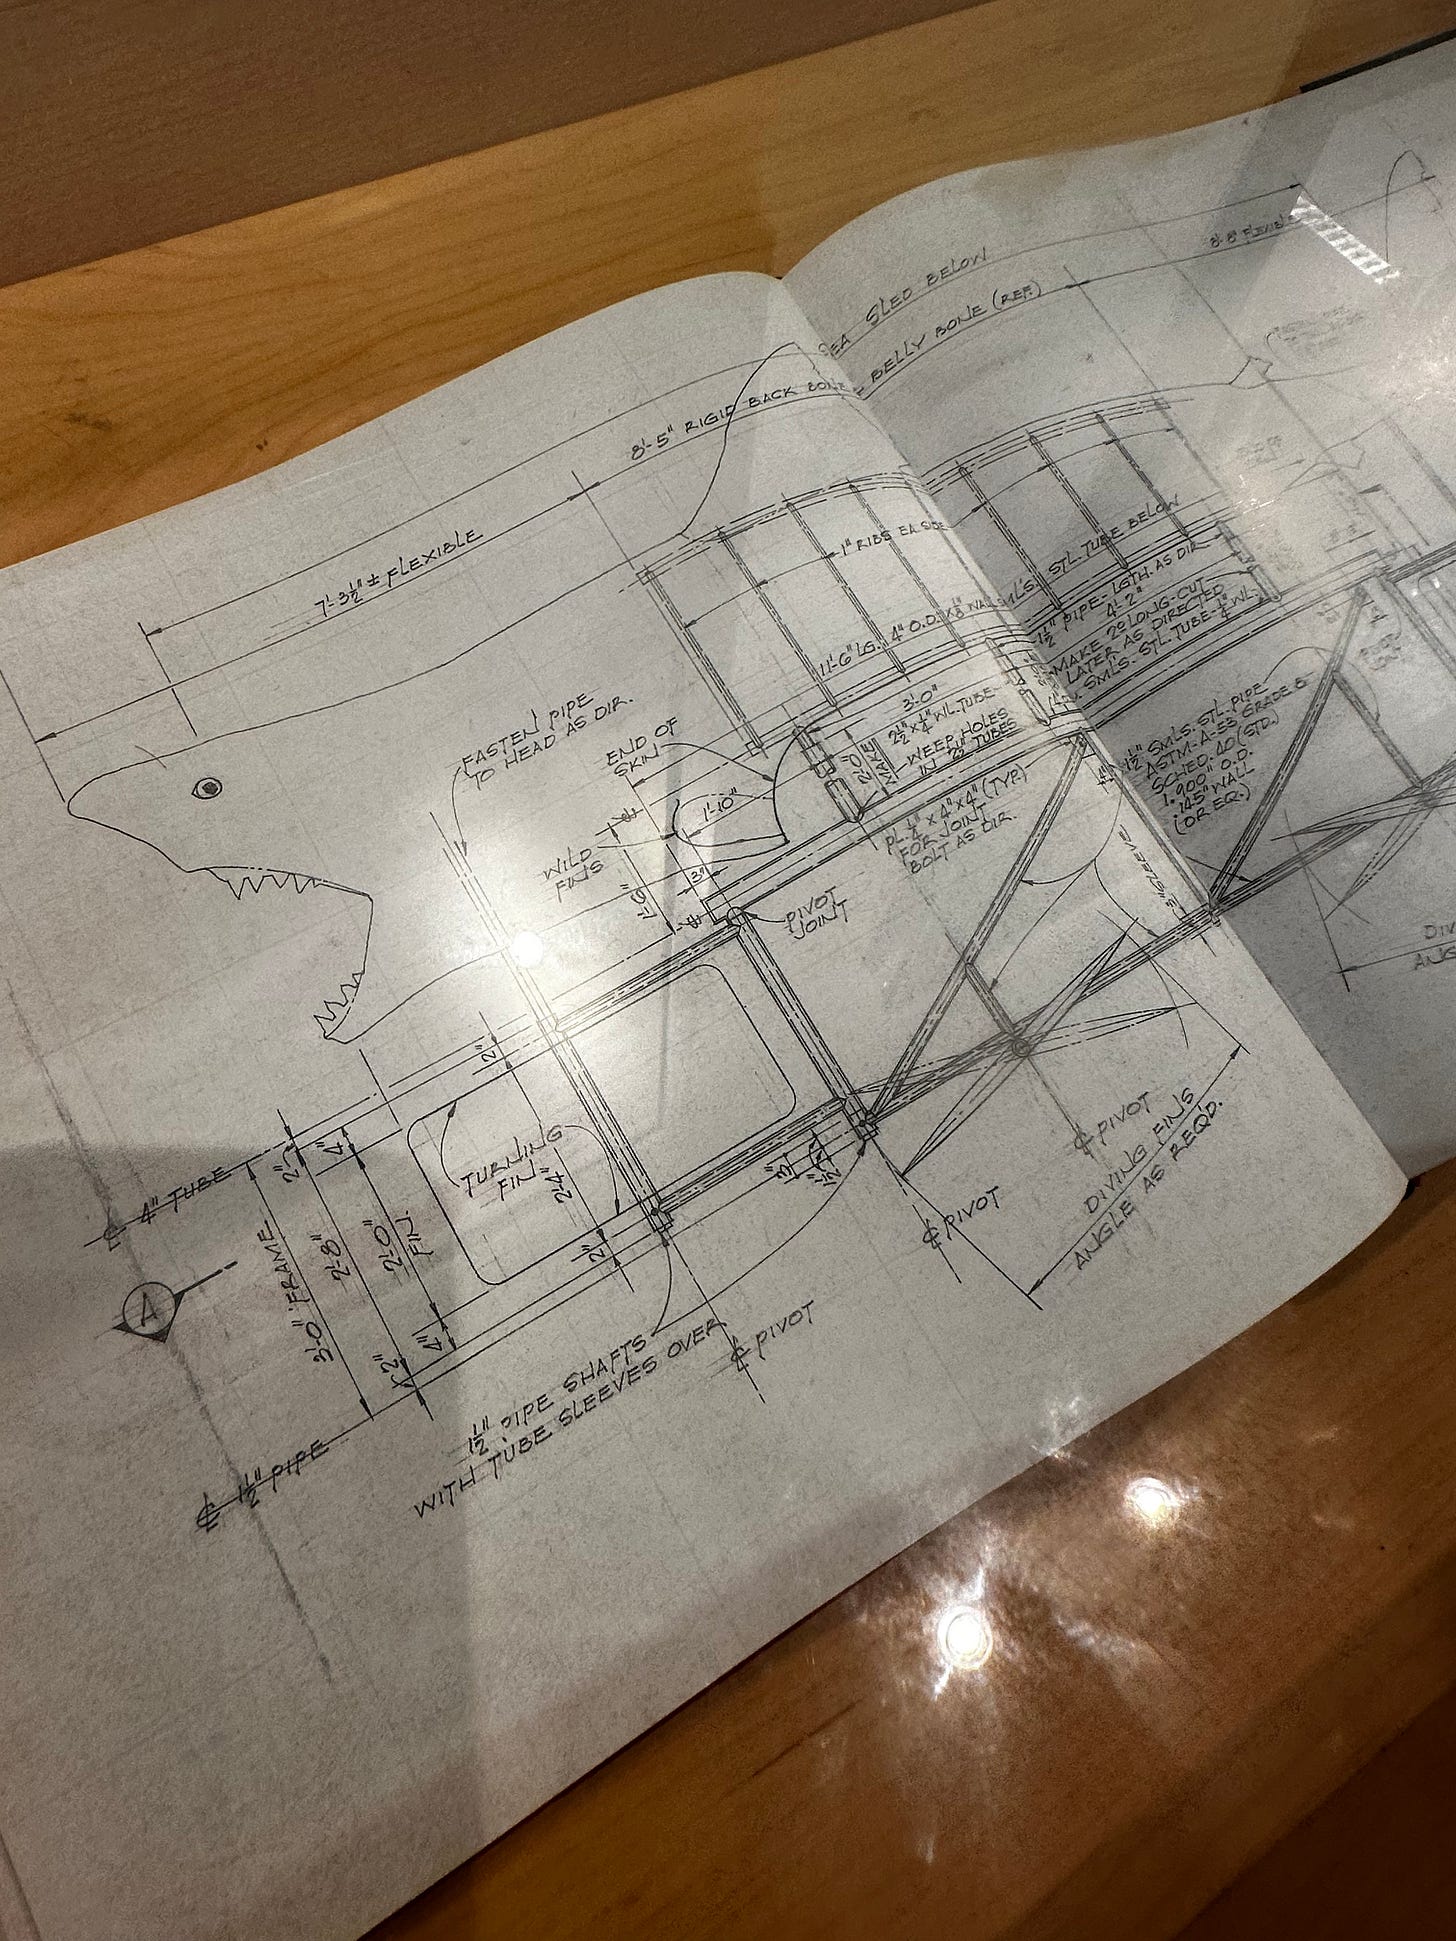 SLED BELOW
8'-8" FLEXIBLE
8'-5" RIGID BACK BONE
BELLY BONE (REF.)
7'-3½"± FLEXIBLE
1" RIBS EA. SIDE
11'-6" LG. 4" O.D. x ⅛" WALL SMLS. STL. TUBE BELOW
1½" PIPE-LGTH. AS DIR.
4'-2"
MAKE 2@ LONG-CUT
LATER AS DIRECTED
SMLS. STL. TUBE-¼" WL.
FASTEN PIPE
TO HEAD AS DIR.
END OF
SKIN
3'-0"
2½" x ¼" WL. TUBE-
MAKE
WEEP HOLES
IN 2½" TUBES
2'-0"
1'-10"
WILD
FINS
1'-6"
3"
PL. ¼" x 4" x 4" (TYP.)
FOR JOINT
BOLT AS DIR.
PIVOT
JOINT
1½" SMLS. STL. PIPE
ASTM-A-53 GRADE B
SCHED. 40 (STD.)
1.900" O.D.
.145" WALL
(OR EQ.)
SLEEVE
2"
TURNING
FIN
2'-4"
2"
3"
1½"
℄ 4" TUBE
2"
4"
3'-0" FRAME
2'-8"
2'-0"
FIN.
4"
2"
A
℄ PIVOT
DIVING FINS
ANGLE AS REQ'D.
℄ PIVOT
℄ PIVOT
1½" PIPE SHAFTS
WITH TUBE SLEEVES OVER
℄ 1½" PIPE